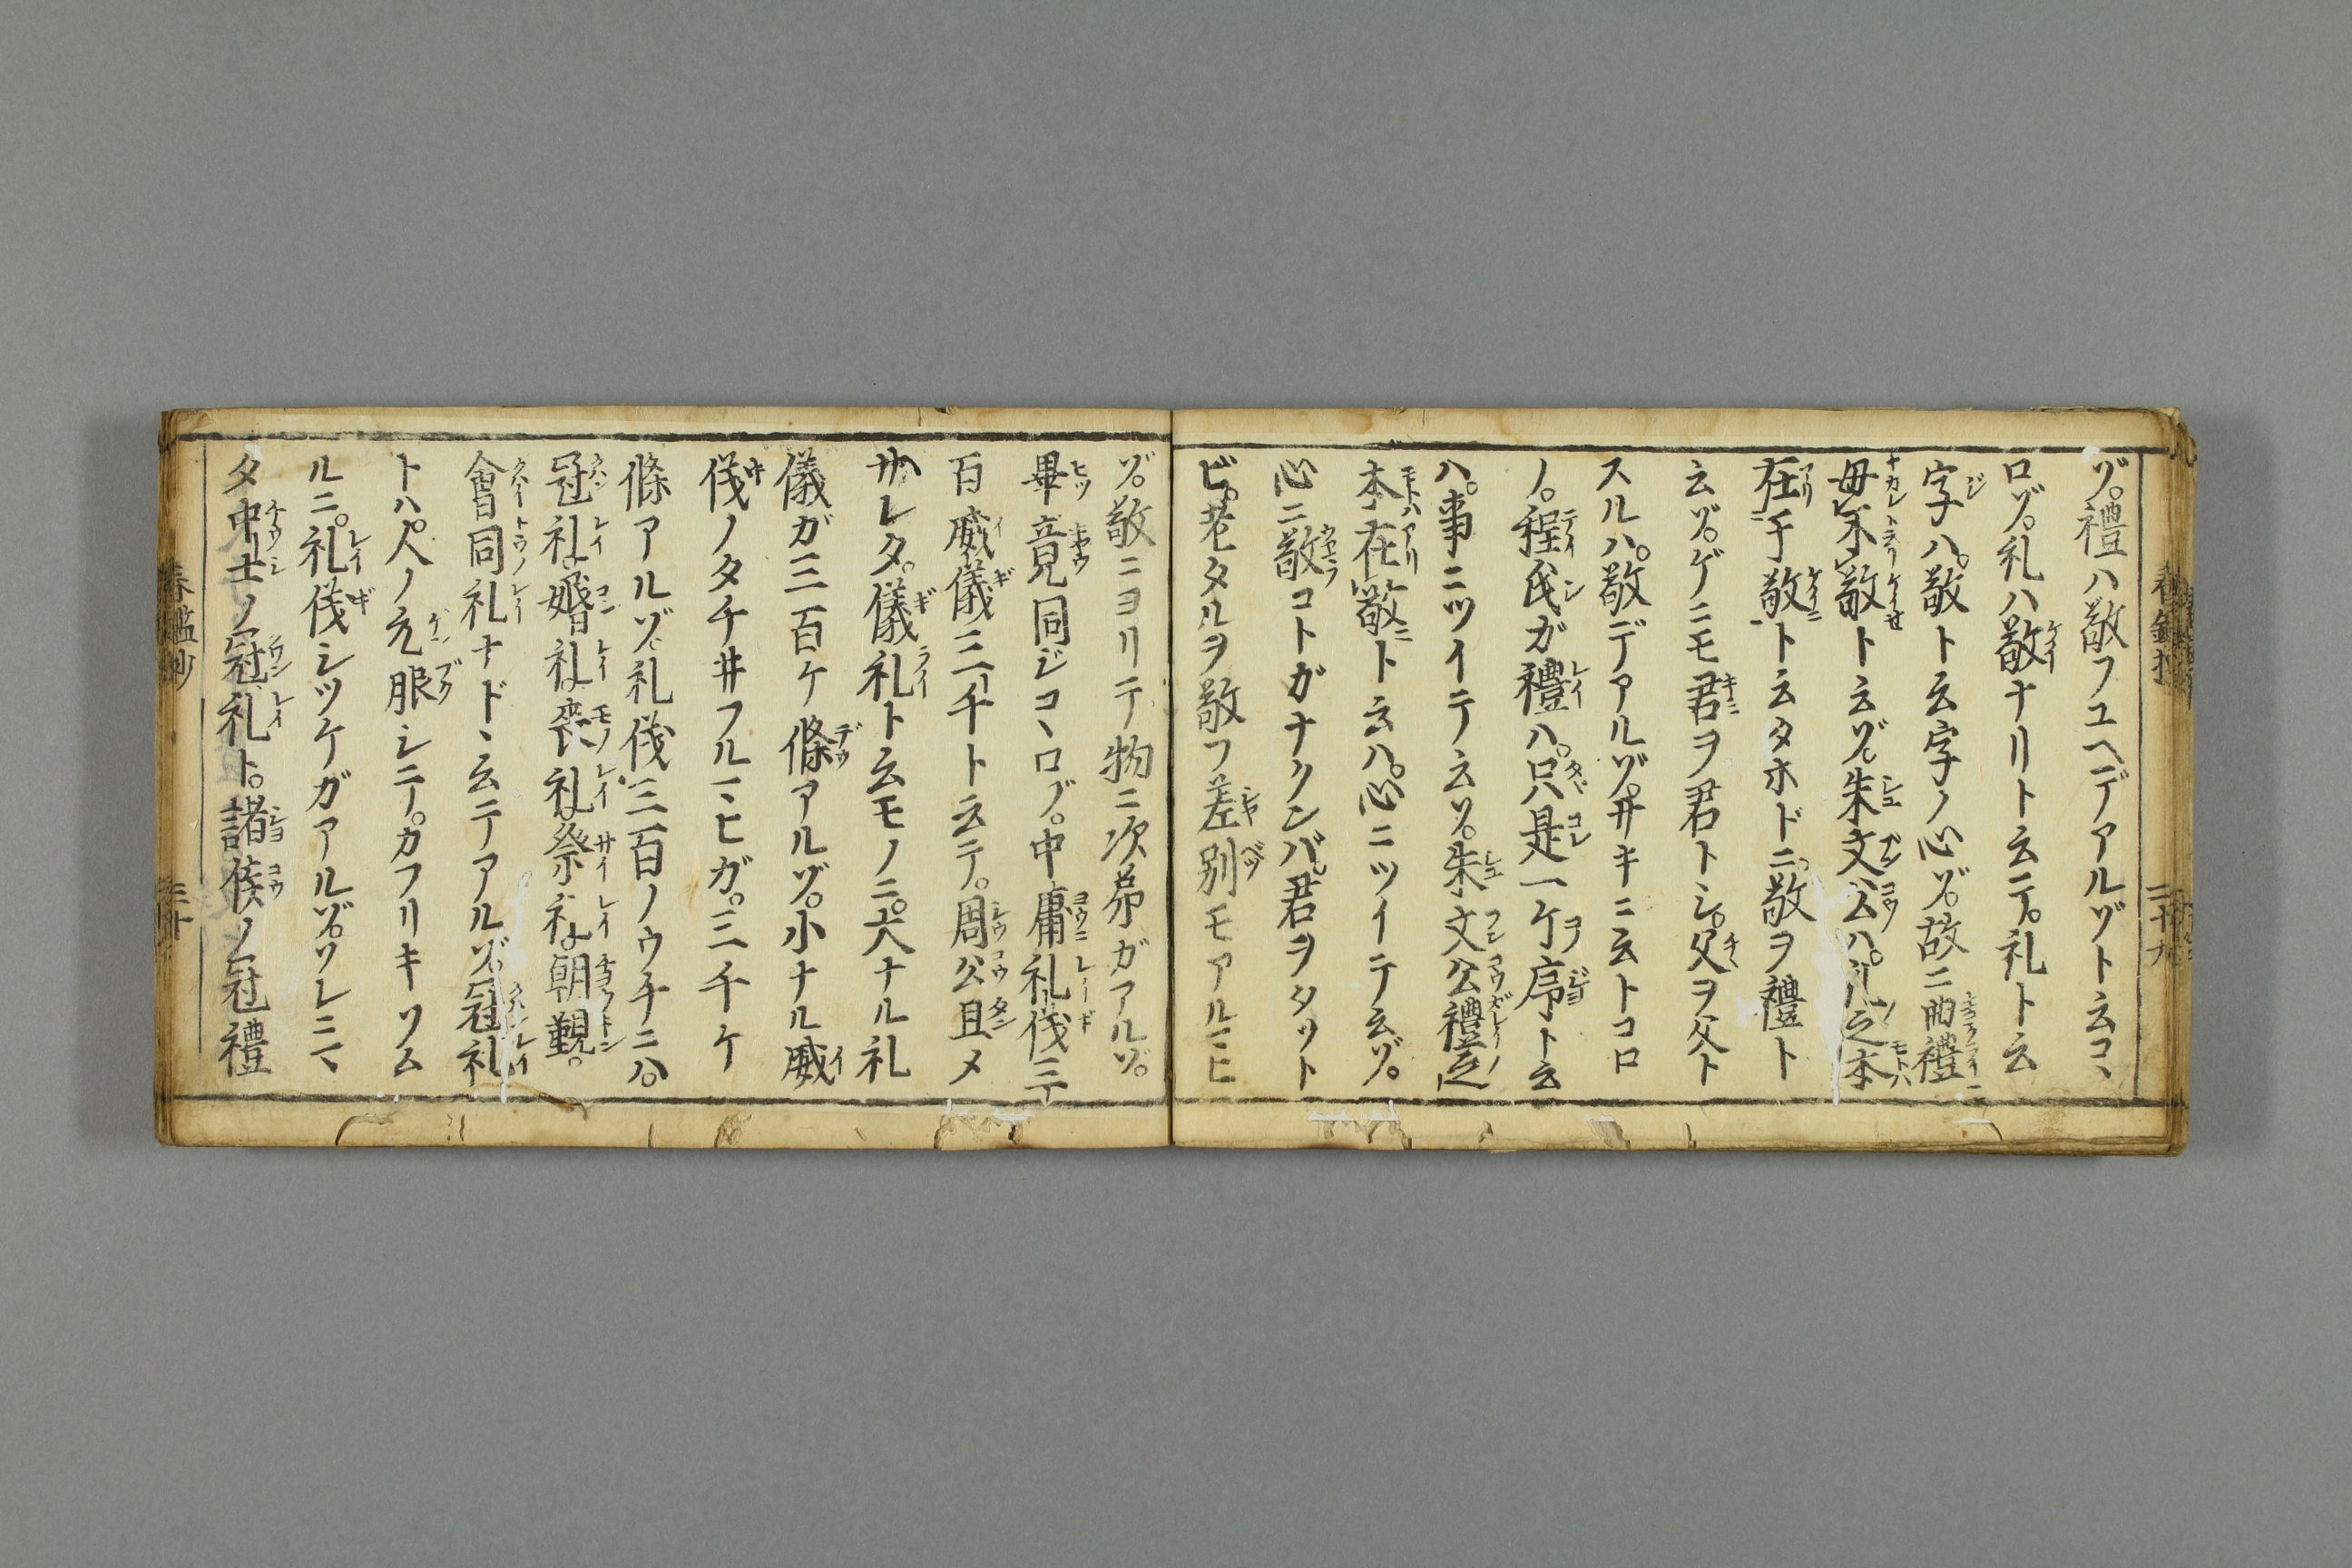 ゾ。禮ハ敬フユヘデアルゾト云コヽ
ロゾ。礼ハ敬ナリト云テ。礼ト云
字ハ。敬ト云字ノ心ゾ。故ニ曲禮
毋不敬ト云ゾ。朱文公ハ。礼之本
在于敬ト云タホドニ。敬ヲ禮ト
云ゾ。ゲニモ君ヲ君トシ。父ヲ父ト
スルハ。敬デアルゾ。サキニ云トコロ
ノ。程氏ガ禮ハ。只是一ケ序ト云
ハ。事ニツイテ云ソ。朱文公禮之
本在敬ト云ハ。心ニツイテ云ゾ。
心ニ敬コトガナクンバ。君ヲタツト
ビ。老タルヲ敬フ差別モアルマヒ
ゾ。敬ニヨリテ物ニ次第ガアルゾ。
畢竟同ジコヽロゾ。中庸礼儀三
百威儀三千ト云テ。周公旦メ
サレタ。儀礼ト云モノニ。大ナル礼
儀ガ三百ケ條アルゾ。小ナル威
儀ノタチ井フルマヒガ。三千ケ
條アルゾ。礼儀三百ノウチニハ。
冠礼婚礼喪礼祭礼朝覲。
會同礼ナドヽ云テアルゾ。冠礼
トハ。人ノ元服シテ。カフリキソム
ルニ。礼儀シツケガアルゾ。ソレニマ
タ中士ノ冠礼ト。諸侯ノ冠禮